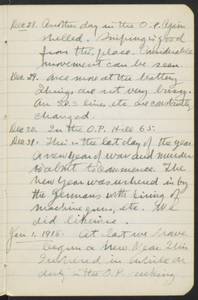 Dec 28. Another day in the O.P. Again
shelled. Sniping is good
from this place. Considerable
movement can be seen
Dec 29. Once more at the battery
Things are not very busy.
An S.O.S. lines etc are constantly
changed.
Dec 30. In the O.P. Hill 65.
Dec 31. This is the last day of the year
A new year of war and murder
is about to commence. The
New Year was ushered in by
the Germans with firing of
machine guns, etc. We
did likewise.
Jan 1. 1918. At last we have
begun a New Year. This
I ushered in while on
duty in the O.P.